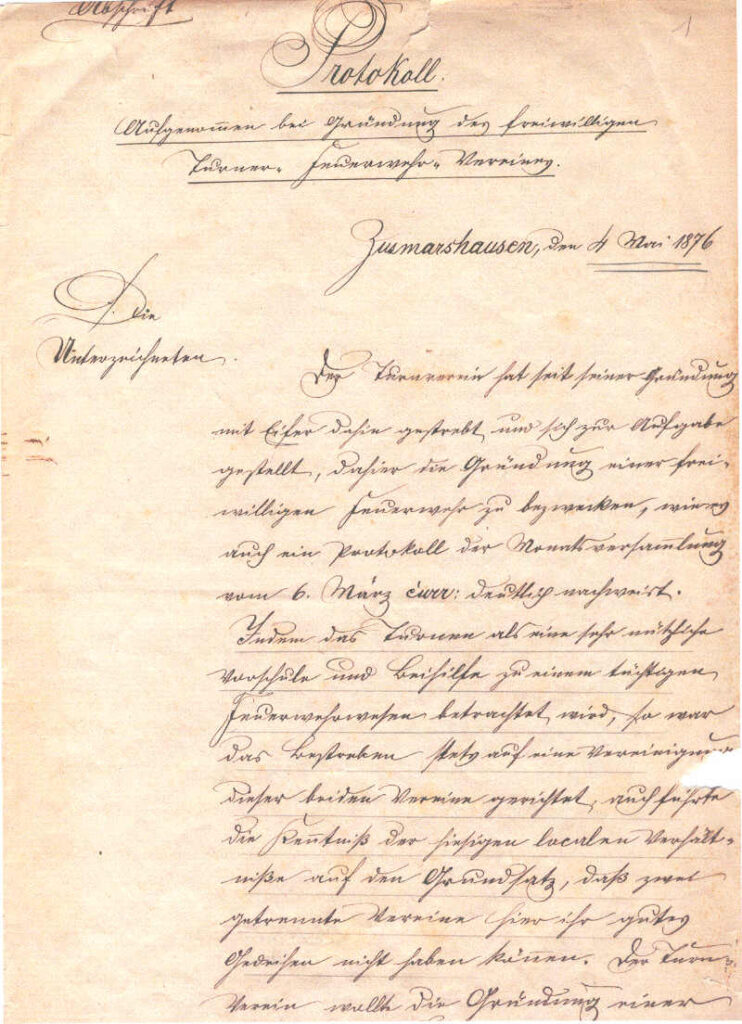 Abschrift
1
Protokoll.
Aufgenommen bei Gründung des freiwilligen
Turner- Feuerwehr- Vereines.
Zusmarshausen, den 4 Mai 1876
Die
Unterzeichneten.
Der Turnverein hat seit seiner Gründung
mit Eifer dahin gestrebt, und sich zur Aufgabe
gestellt, dahier die Gründung einer frei-
willigen Feuerwehr zu bezwecken, wie es
auch ein Protokoll der Monatsversammlung
vom 6. März curr: deutlich nachweist.
Indem das Turnen als eine sehr nützliche
Vorschule und Beihilfe zu einem tüchtigen
Feuerwehrwesen betrachtet wird, so war
das Bestreben stets auf eine Vereinigung
dieser beiden Vereine gerichtet, auch führte
die Kenntniß der hiesigen localen Verhält-
niße auf den Grundsatz, daß zwei
getrennte Vereine hier ihr gutes
Gedeihen nicht haben können. Der Turn-
Verein wollte die Gründung einer